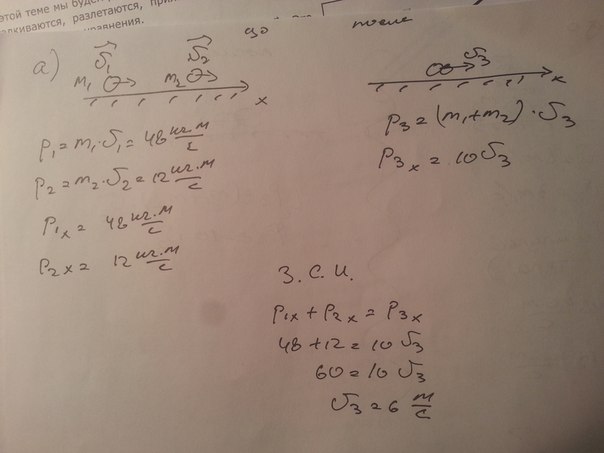 этой теме мы буде
лкиваются, разлетаются, при
уравнения.
до после
а) υ₁ υ₂ υ₃
m₁ m₂
x x
p₁ = m₁·υ₁ = 48 кг·м/с
p₂ = m₂·υ₂ = 12 кг·м/с
p₁ₓ = 48 кг·м/с
p₂ₓ = 12 кг·м/с
p₃ = (m₁+m₂)·υ₃
p₃ₓ = 10υ₃
З.С.И.
p₁ₓ + p₂ₓ = p₃ₓ
48 + 12 = 10 υ₃
60 = 10 υ₃
υ₃ = 6 м/с